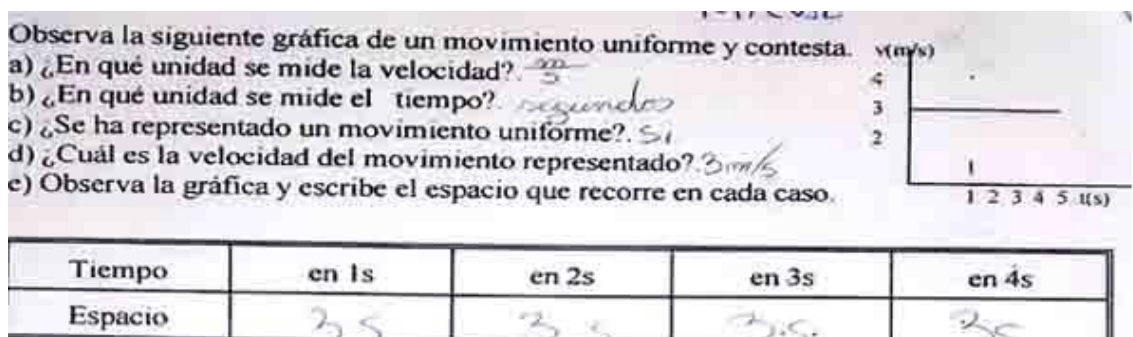 Observa la siguiente gráfica de un movimiento uniforme y contesta.
a) ¿En qué unidad se mide la velocidad?. m/s
b) ¿En qué unidad se mide el tiempo?. segundos
c) ¿Se ha representado un movimiento uniforme?. Si
d) ¿Cuál es la velocidad del movimiento representado?. 3 m/s
e) Observa la gráfica y escribe el espacio que recorre en cada caso.
v(m/s)
4
3
2
1
1 2 3 4 5 t(s)
Tiempo en 1s en 2s en 3s en 4s
Espacio 3 s 3 s 3.s.